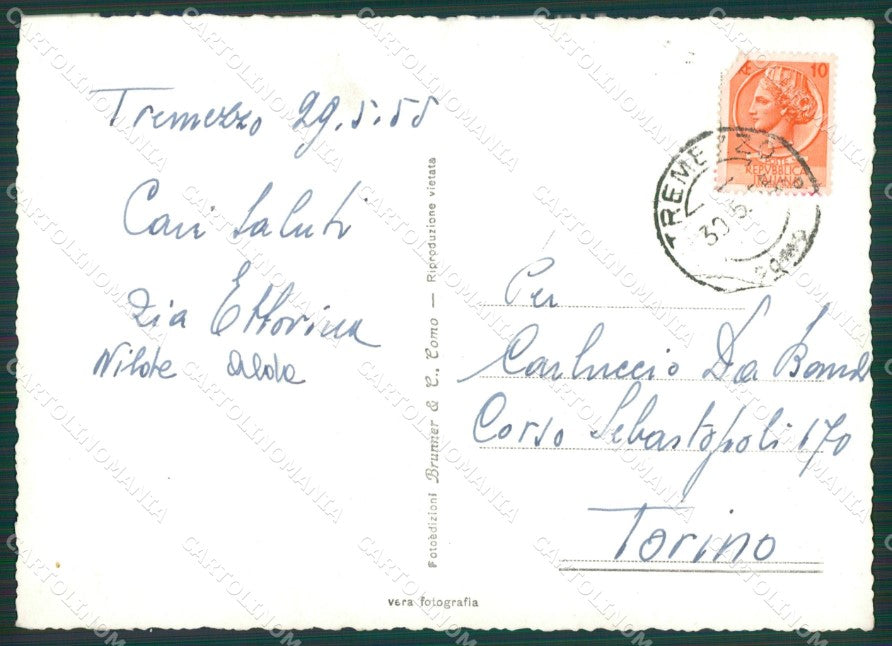 Tremezzo 29.5.55
Cari Saluti
Zia Ettorina
Nilde Alda
Fotoedizioni Brunner & C., Como — Riproduzione vietata
vera fotografia
10
REPVBBLICA
ITALIANA
TREMEZZO
30.5
COMO
Per
Carluccio Da
Corso Sebastopoli 170
Torino
CARTOLINOMANIA